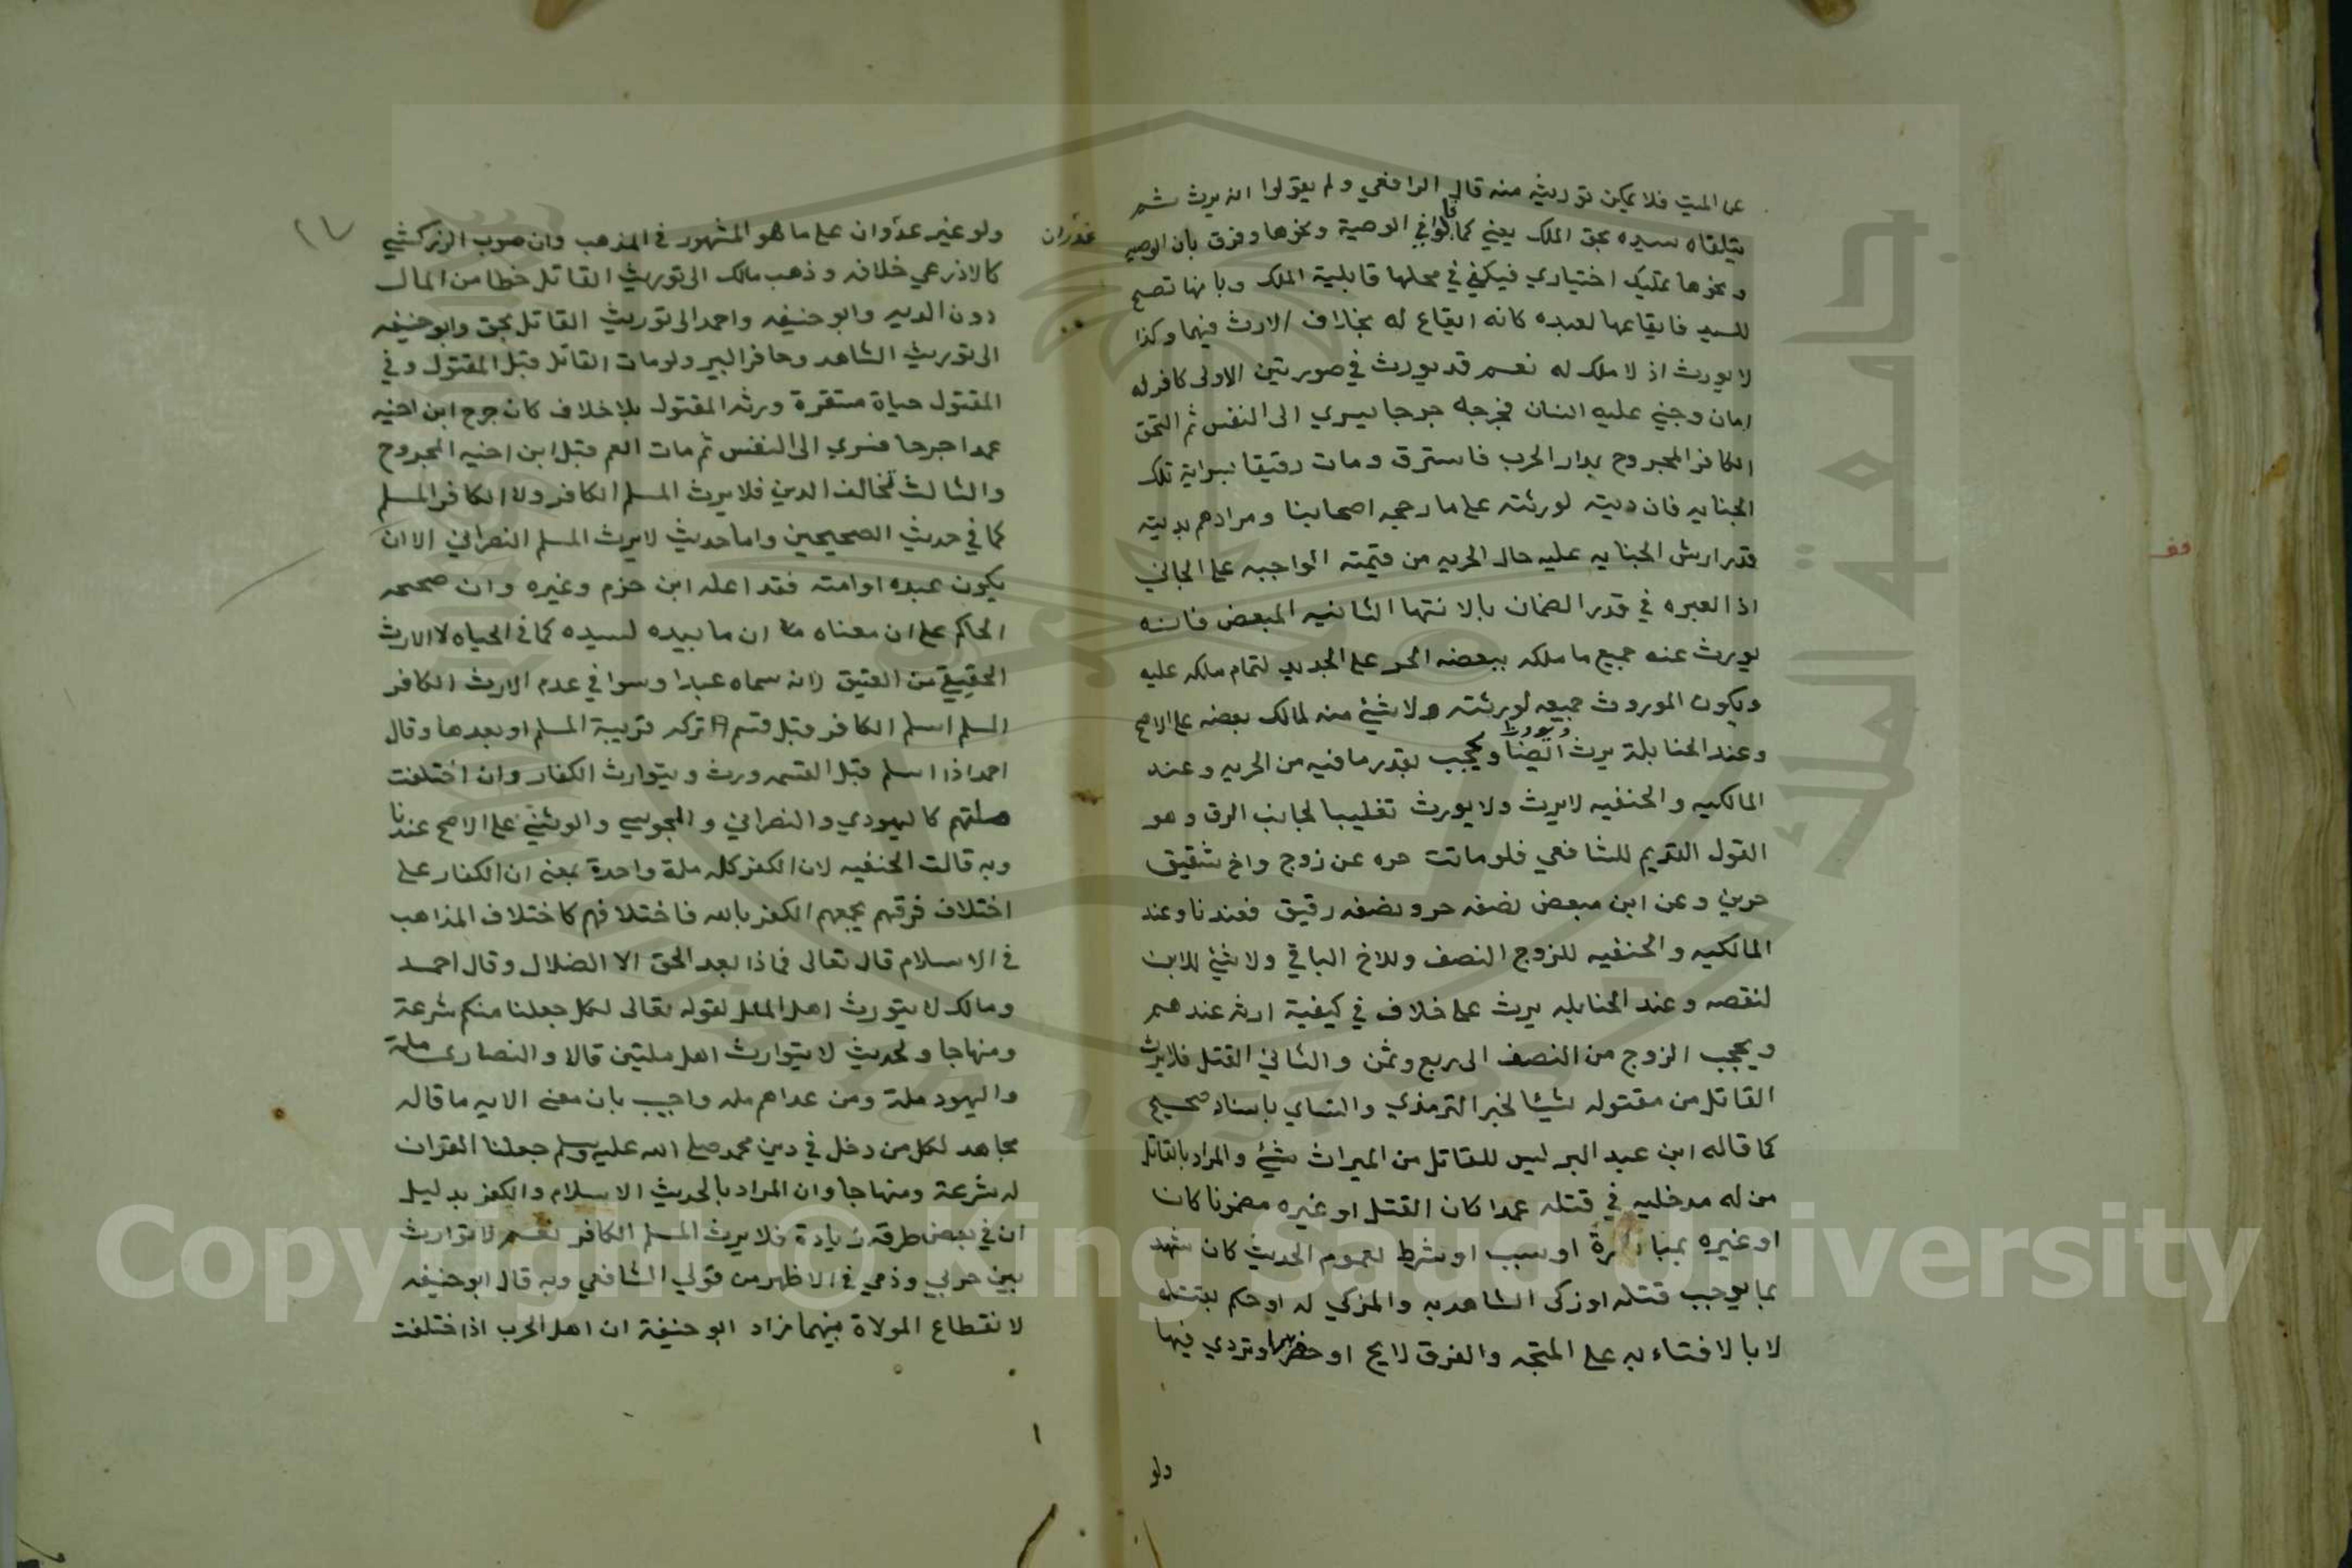 عن الميت فلا يمكن توريثه منه قال الرافعي ولم يقولوا انه يرث ثم
يتلقاه سيده بحق الملك يعني كما قالوا في الوصية ونحوها وفرق بان الوصيه
ونحوها تمليك اختياري فيكفي في محلها قابلية الملك وبانها تصح
للسيد فايقاعها لعبده كانه ايقاع له بخلاف الارث فيهما وكذا
لا يورث اذ لا ملك له نعم قد يورث في صورتين الاولى كافر له
امان وجني عليه انسان فجرحه جرحا يسري الى النفس ثم التحق
الكافر المجروح بدار الحرب فاسترق ومات رقيقا بسراية تلك
الجنايه فان ديته لورثته على ما رجحه اصحابنا ومرادهم بديته
قدر ارش الجنايه عليه حال الحريه من قيمته الواجبه على الجاني
اذ العبره في قدر الضمان بالانتها الثانيه المبعض فانه
يورث عنه جميع ما ملكه ببعضه الحر على الجديد لتمام ملكه عليه
ويكون الموروث جميعه لورثته ولا شئ منه لمالك بعضه على الاصح
وعند الحنابلة يرث ويورث ايضا ويحجب بقدر ما فيه من الحريه وعند
المالكيه والحنفيه لا يرث ولا يورث تغليبا لجانب الرق وهو
القول القديم للشافعي فلو ماتت حره عن زوج واخ شقيق
حرين وعن ابن مبعض نصفه حر ونصفه رقيق فعندنا وعند
المالكيه والحنفيه للزوج النصف وللاخ الباقي ولا شئ للابن
لنقصه وعند الحنابله يرث على خلاف في كيفية ارثه عندهم
ويحجب الزوج من النصف الى ربع وثمن والثاني القتل فلا يرث
القاتل من مقتوله شيئا لخبر الترمذي والنساي باسناد صحيح
كما قاله ابن عبد البر ليس للقاتل من الميراث شئ والمراد بالقاتل
من له مدخليه في قتله عمدا كان القتل او غيره مضمونا كان
او غيره بمباشرة او سبب او شرط لعموم الحديث كان شهد
بما يوجب قتله او زكى الشاهد به والمزكي له او حكم بقتله
لا بالافتاء به على المتجه والفرق لايح او حفر بيرا وتردي فيها
ولو
عدوان
ولو غير عدوان على ما هو المشهور في المذهب وان صوب الزركشي
كالاذرعي خلافه وذهب مالك الى توريث القاتل خطا من المال
دون الديه وابو حنيفه واحمد الى توريث القاتل بحق وابو حنيفه
الى توريث الشاهد وحافر البير ولو مات القاتل قبل المقتول وفي
المقتول حياة مستقرة ورثه المقتول بلا خلاف كان جرح ابن اخيه
عمدا جرحا فسري الى النفس ثم مات العم قبل ابن اخيه المجروح
والثالث تخالف الدين فلا يرث المسلم الكافر ولا الكافر المسلم
كما في حديث الصحيحين واما حديث لا يرث المسلم النصراني الا ان
يكون عبده او امته فقد اعله ابن حزم وغيره وان صححه
الحاكم على ان معناه ان ما بيده لسيده كما في الحياه لا الارث
الحقيقي من العتيق لانه سماه عبدا وسوا في عدم الارث الكافر
المسلم اسلم الكافر قبل قسم تركه قريبة المسلم او بعدها وقال
احمد اذا اسلم قبل القسمه ورث ويتوارث الكفار وان اختلفت
ملتهم كاليهودي والنصراني والمجوسي والوثني على الاصح عندنا
وبه قالت الحنفيه لان الكفر كله ملة واحدة بمعنى ان الكفار على
اختلاف فرقهم يجمعهم الكفر بالله فاختلافهم كاختلاف المذاهب
في الاسلام قال تعالى فماذا بعد الحق الا الضلال وقال احمد
ومالك لا يتورث اهل الملل لقوله تعالى لكل جعلنا منكم شرعة
ومنهاجا ولحديث لا يتوارث اهل ملتين قالا والنصارى ملة
واليهود ملة ومن عداهم مله واجيب بان معنى الايه ما قاله
مجاهد لكل من دخل في دين محمد صلى الله عليه وسلم جعلنا القران
له شرعة ومنهاجا وان المراد بالحديث الاسلام والكفر بدليل
ان في بعض طرقه زيادة فلا يرث المسلم الكافر نعم لا توارث
بين حربي وذمي في الاظهر من قولي الشافعي وبه قال ابو حنيفه
لانقطاع المولاة بينهما زاد ابو حنيفة ان اهل الحرب اذا اختلفت
وقف
جامعة الملك سعود
1957
Copyright © King Saud University